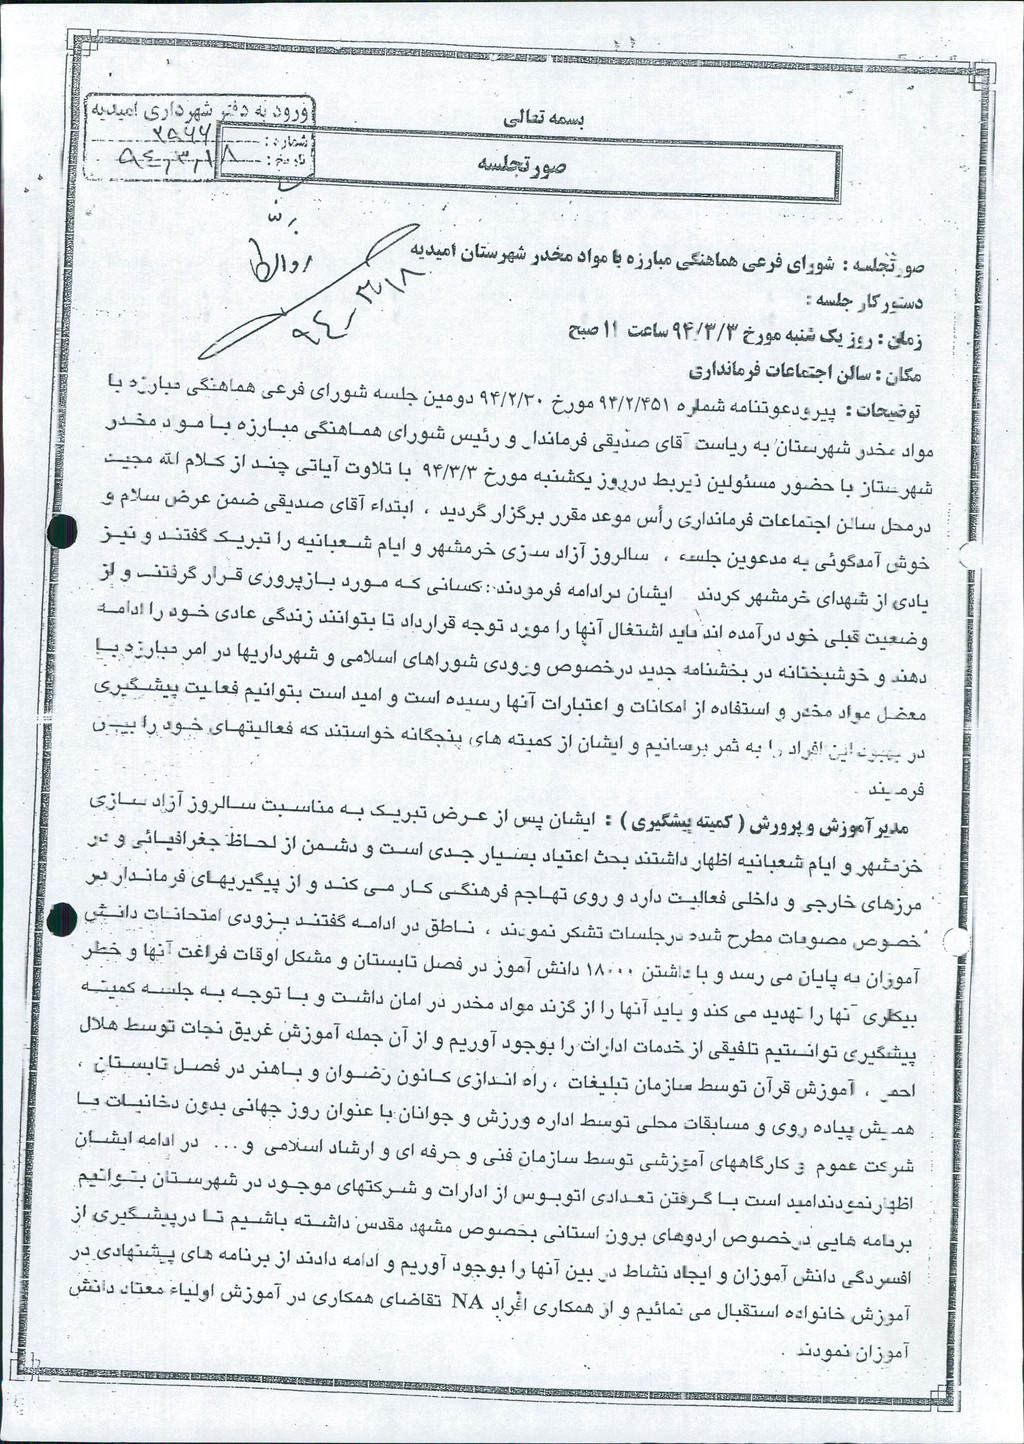 ورود به دفتر شهرداری امیدیه
شماره: ۲۵۶۶
تاریخ: ۹۴٫۳٫۱۸
بسمه تعالی
صورتجلسه
روابط
۹۴-۳/۱۸
صورتجلسه : شورای فرعی هماهنگی مبارزه با مواد مخدر شهرستان امیدیه
دستور کار جلسه :
زمان : روز یک شنبه مورخ ۹۴/۳/۳ ساعت ۱۱ صبح
مکان : سالن اجتماعات فرمانداری
توضیحات : پیرودعوتنامه شماره ۹۴/۲/۴۵۱ مورخ ۹۴/۲/۳۰ دومین جلسه شورای فرعی هماهنگی مبارزه با
مواد مخدر شهرستان به ریاست آقای صدیقی فرماندار و رئیس شورای هماهنگی مبارزه با مواد مخدر
شهرستان با حضور مسئولین ذیربط درروز یکشنبه مورخ ۹۴/۳/۳ با تلاوت آیاتی چند از کلام الله مجید
درمحل سالن اجتماعات فرمانداری رأس موعد مقرر برگزار گردید ، ابتداء آقای صدیقی ضمن عرض سلام و
خوش آمدگوئی به مدعوین جلسه ، سالروز آزاد سزی خرمشهر و ایام شعبانیه را تبریک گفتند و نیز
یادی از شهدای خرمشهر کردند ایشان درادامه فرمودند : کسانی که مورد بازپروری قرار گرفتند و از
وضعیت قبلی خود درآمده اند باید اشتغال آنها را مورد توجه قرارداد تا بتوانند زندگی عادی خود را ادامه
دهند و خوشبختانه در بخشنامه جدید درخصوص ورودی شوراهای اسلامی و شهرداریها در امر مبارزه با
معضل مواد مخدر و استفاده از امکانات و اعتبارات آنها رسیده است و امید است بتوانیم فعالیت پیشگیری
در بهبود این افراد را به ثمر برسانیم و ایشان از کمیته های پنجگانه خواستند که فعالیتهای خود را بیان
فرمایند .
مدیر آموزش و پرورش ( کمیته پیشگیری ) : ایشان پس از عرض تبریک به مناسبت سالروز آزاد سازی
خرمشهر و ایام شعبانیه اظهار داشتند بحث اعتیاد بسیار جدی است و دشمن از لحاظ جغرافیائی و در
مرزهای خارجی و داخلی فعالیت دارد و روی تهاجم فرهنگی کار می کند و از پیگیریهای فرماندار در
خصوص مصوبات مطرح شده درجلسات تشکر نمودند ، ناطق در ادامه گفتند بزودی امتحانات دانش
آموزان به پایان می رسد و با داشتن ۱۸۰۰۰ دانش آموز در فصل تابستان و مشکل اوقات فراغت آنها و خطر
بیکاری آنها را تهدید می کند و باید آنها را از گزند مواد مخدر در امان داشت و با توجه به جلسه کمیته
پیشگیری توانستیم تلفیقی از خدمات ادارات را بوجود آوریم و از آن جمله آموزش غریق نجات توسط هلال
احمر ، آموزش قرآن توسط سازمان تبلیغات ، راه اندازی کانون رضوان و باهنر در فصل تابستان ،
همایش پیاده روی و مسابقات محلی توسط اداره ورزش و جوانان با عنوان روز جهانی بدون دخانیات با
شرکت عموم و کارگاههای آموزشی توسط سازمان فنی و حرفه ای و ارشاد اسلامی و... در ادامه ایشان
اظهارنمودندامید است با گرفتن تعدادی اتوبوس از ادارات و شرکتهای موجود در شهرستان بتوانیم
برنامه هایی درخصوص اردوهای برون استانی بخصوص مشهد مقدس داشته باشیم تا درپیشگیری از
افسردگی دانش آموزان و ایجاد نشاط در بین آنها را بوجود آوریم و ادامه دادند از برنامه های پیشنهادی در
آموزش خانواده استقبال می نمائیم و از همکاری افراد NA تقاضای همکاری در آموزش اولیاء معتاد دانش
آموزان نمودند .